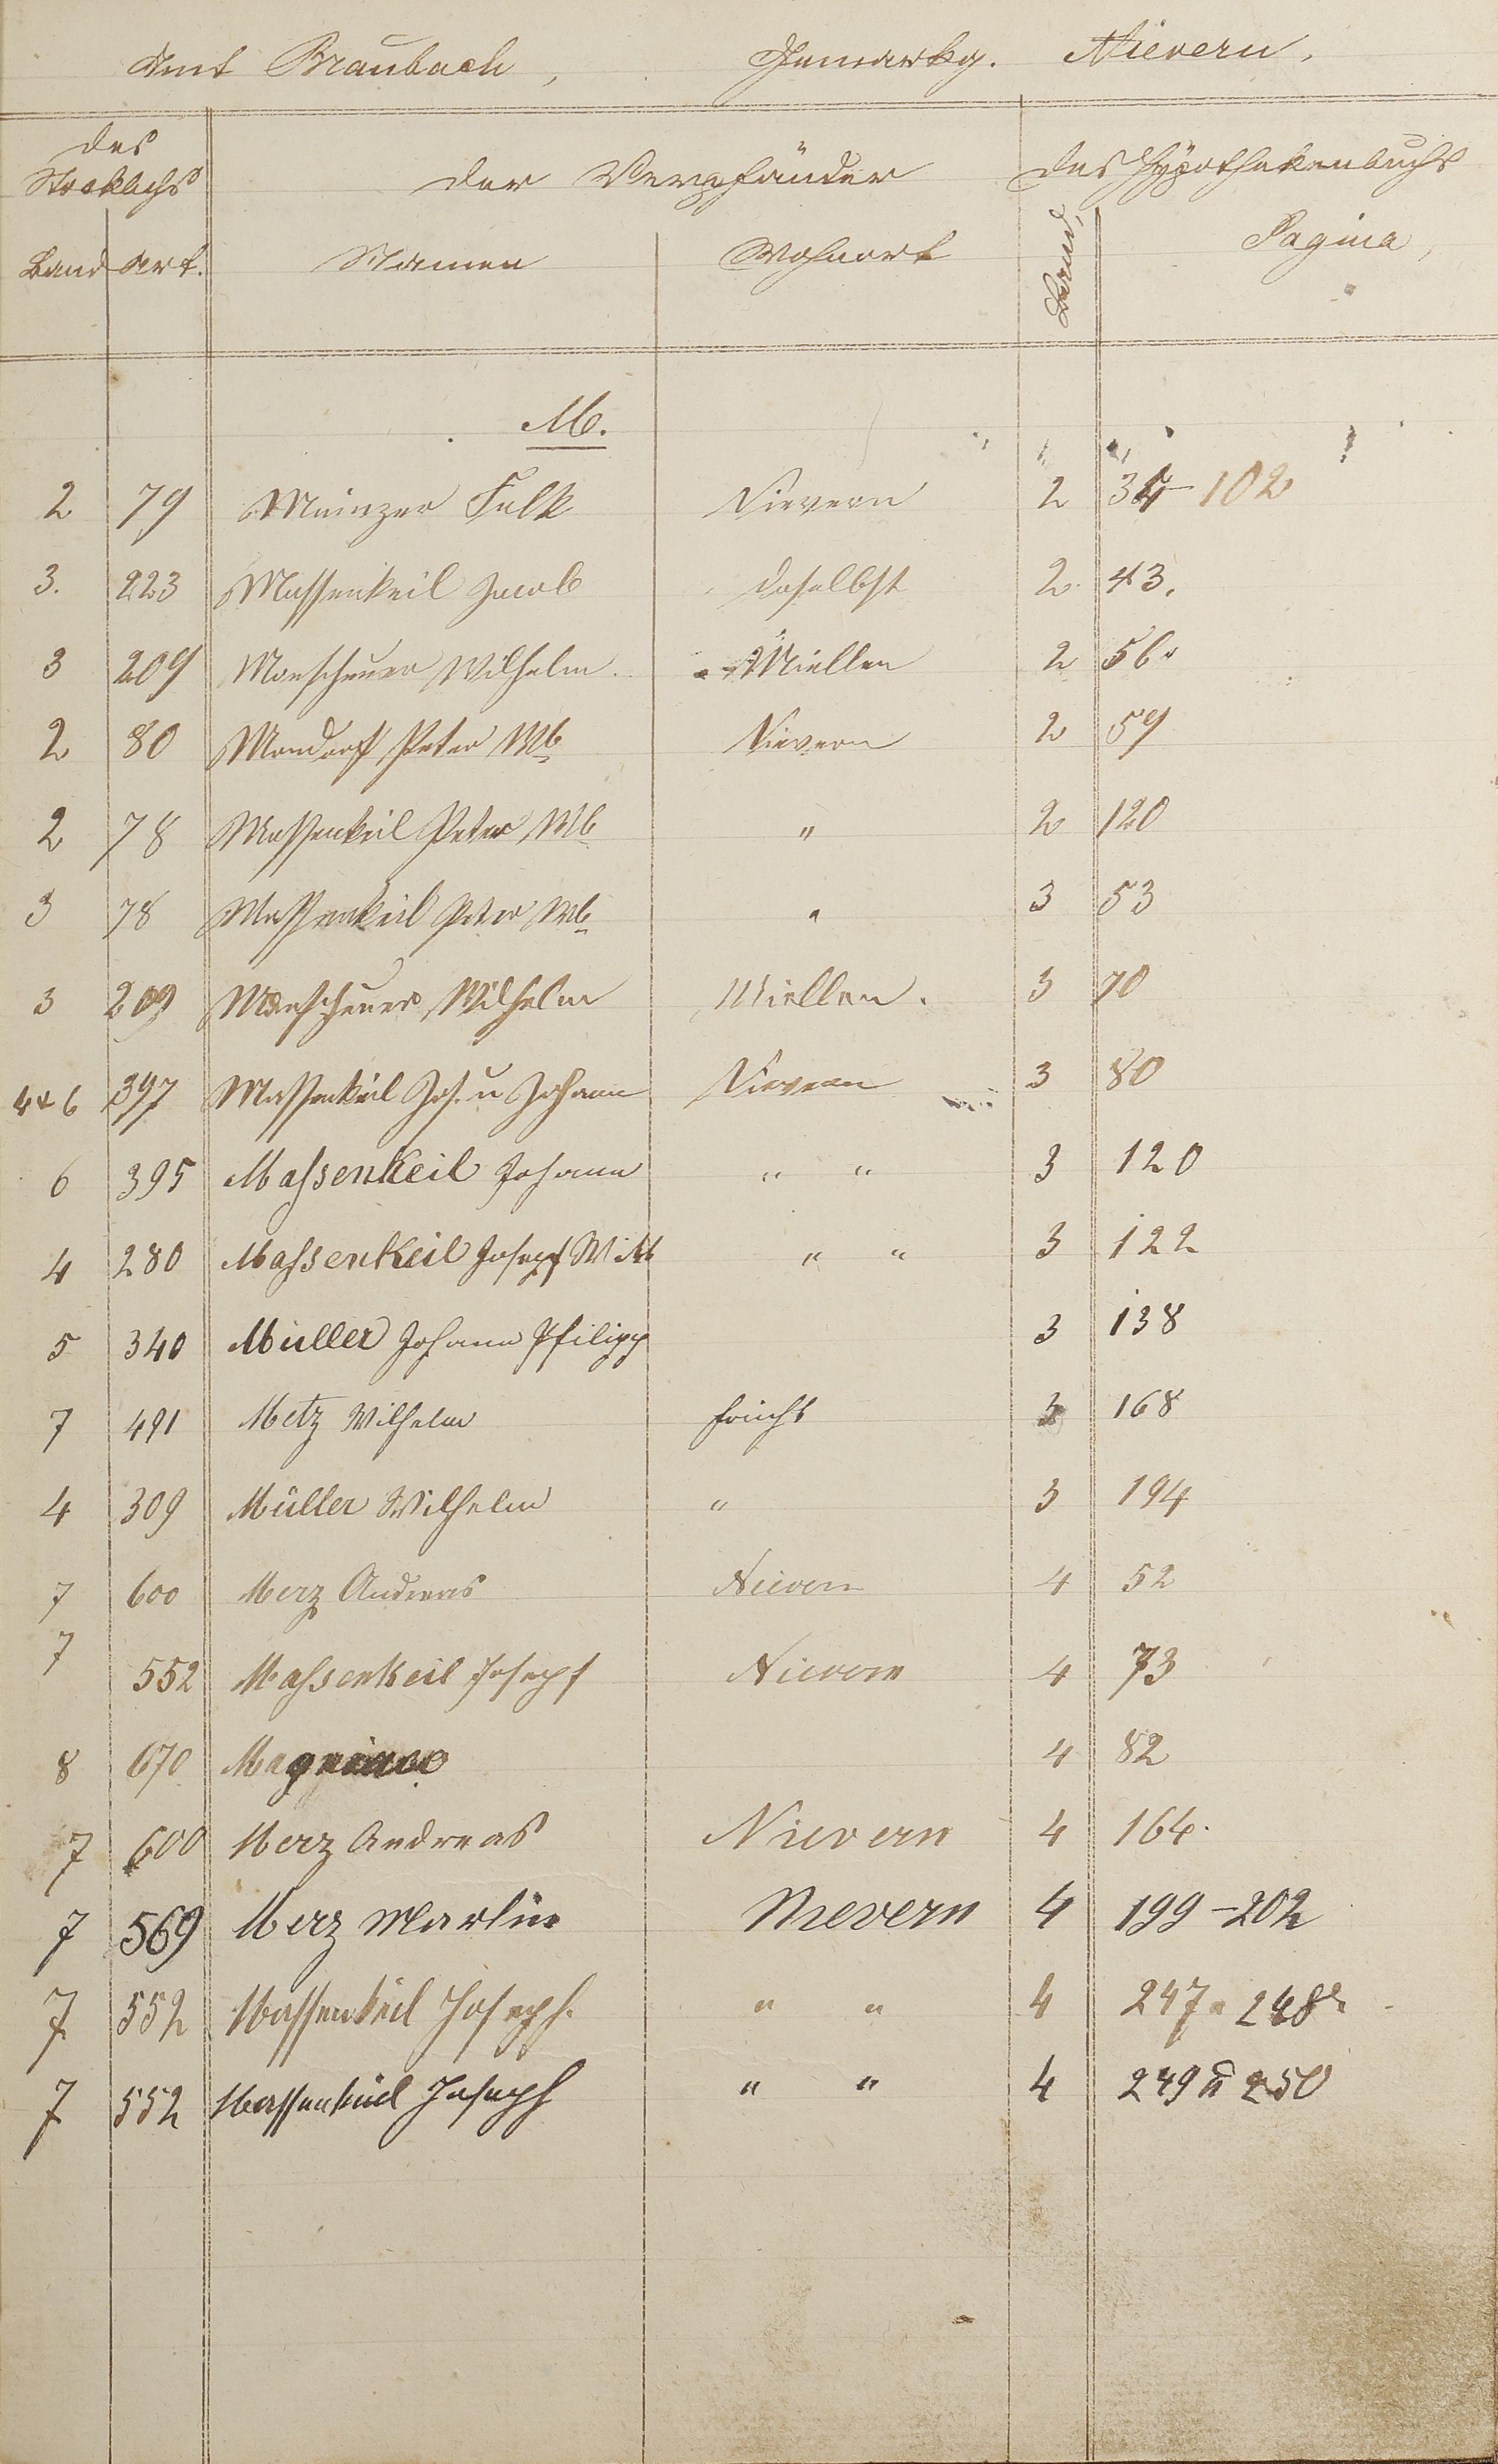 Amt Braubach, Gemarkg. Nievern.
des Stockbuchs der Verpfänder des Hypothekenbuchs
Band Art. Namen Wohnort Band, Pagina,
M.
2 79 Mainzer Falk Nievern 2 34 - 102
3. 223 Massenkeil Jacob daselbst 2. 43.
3 209 Monscheuer Wilhelm. Miellen 2 56.
2 80 Mondorf Peter Wb Nievern 2 59
2 78 Massenkeil Peter Wb " 2 120
3 78 Massenkeil Peter Wb " 3 53
3 209 Monscheuer Wilhelm Miellen. 3 70
4 & 6 397 Massenkeil Jos. u Johann Nievern 3 80
6 395 Maßenkeil Johann " " 3 120
4 280 Maßenkeil Josepf Witb " " 3 122
5 340 Müller Johann Philipp 3 138
7 491 Metz Wilhelm Frücht 3 168
4 309 Müller Wilhelm " 3 194
7 600 Merz Andreas Nievern 4 52
7 552 Maßenkeil Josepf Nievern 4 73
8 670 4 82
7 600 Merz Andreas Nievern 4 164.
7 569 Merz Martin Nievern 4 199-202
7 552 Massenkeil Joseph. " " 4 247 248
7 552 Massenkeil Joseph " " 4 249 u 250